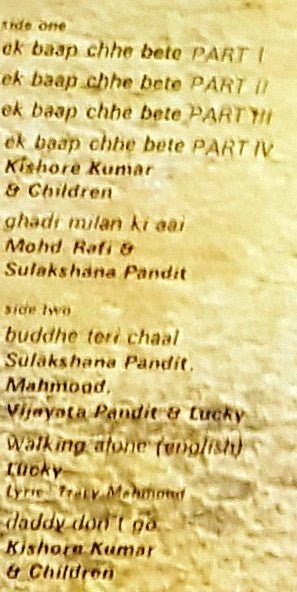 side one
ek baap chhe bete PART I
ek baap chhe bete PART II
ek baap chhe bete PART III
ek baap chhe bete PART IV
Kishore Kumar
& Children
ghadi milan ki aai
Mohd. Rafi &
Sulakshana Pandit
side two
buddhe teri chaal
Sulakshana Pandit,
Mahmood,
Vijayata Pandit & Lucky
walking alone (english)
Lucky
Lyric: Tracy Mahmood
daddy don't go
Kishore Kumar
& Children